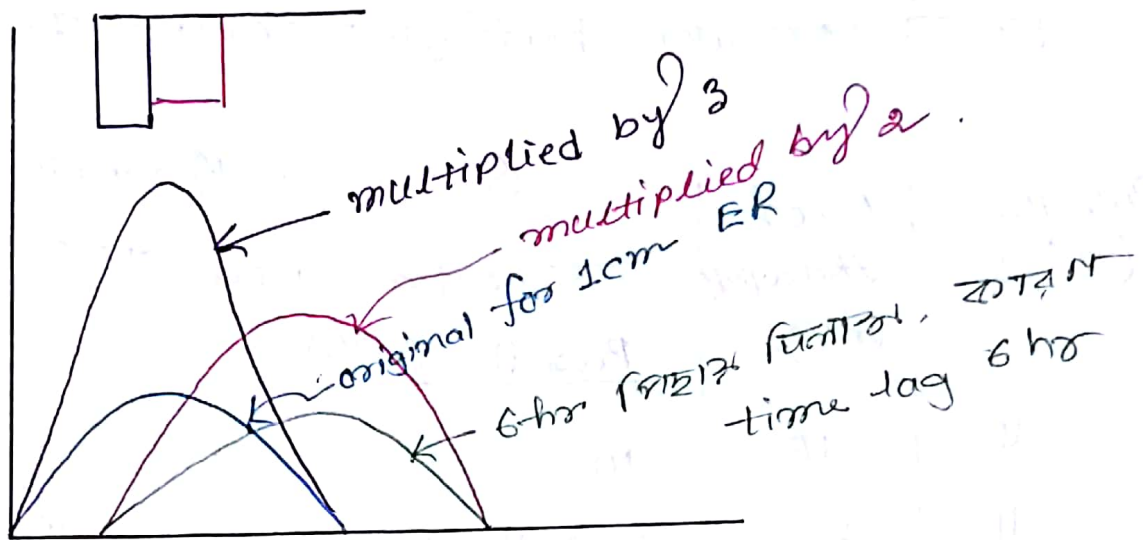 multiplied by 3
multiplied by 2.
original for 1cm ER
6-hr পিছায় দিলাম, কারণ
time lag 6 hr